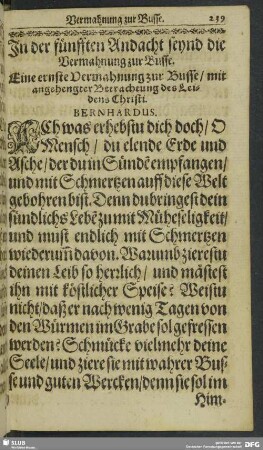 Vermahnung zur Busse. 239
In der fünfften Andacht seynd die
Vermahnung zur Busse.
Eine ernste Vermahnung zur Busse/ mit
angehengter Betrachtung des Lei-
dens Christi.
BERNHARDUS.
ACh was erhebstu dich doch/ O
Mensch/ du elende Erde und
Asche/ der du in Sündē empfangen/
und mit Schmertzen auff diese Welt
gebohren bist. Denn du bringest dein
sündlichs Lebē zu mit Müheseligkeit/
und must endlich mit Schmertzen
wiederum̃ davon. Warumb zierestu
deinen Leib so herrlich/ und mästest
ihn mit köstlicher Speise? Weistu
nicht/ daß er nach wenig Tagen von
den Würmen im Grabe sol gefressen
werden? Schmücke vielmehr deine
Seele/ und ziere sie mit wahrer Bus-
se und guten Wercken/ denn sie sol im
Him-
SLUB